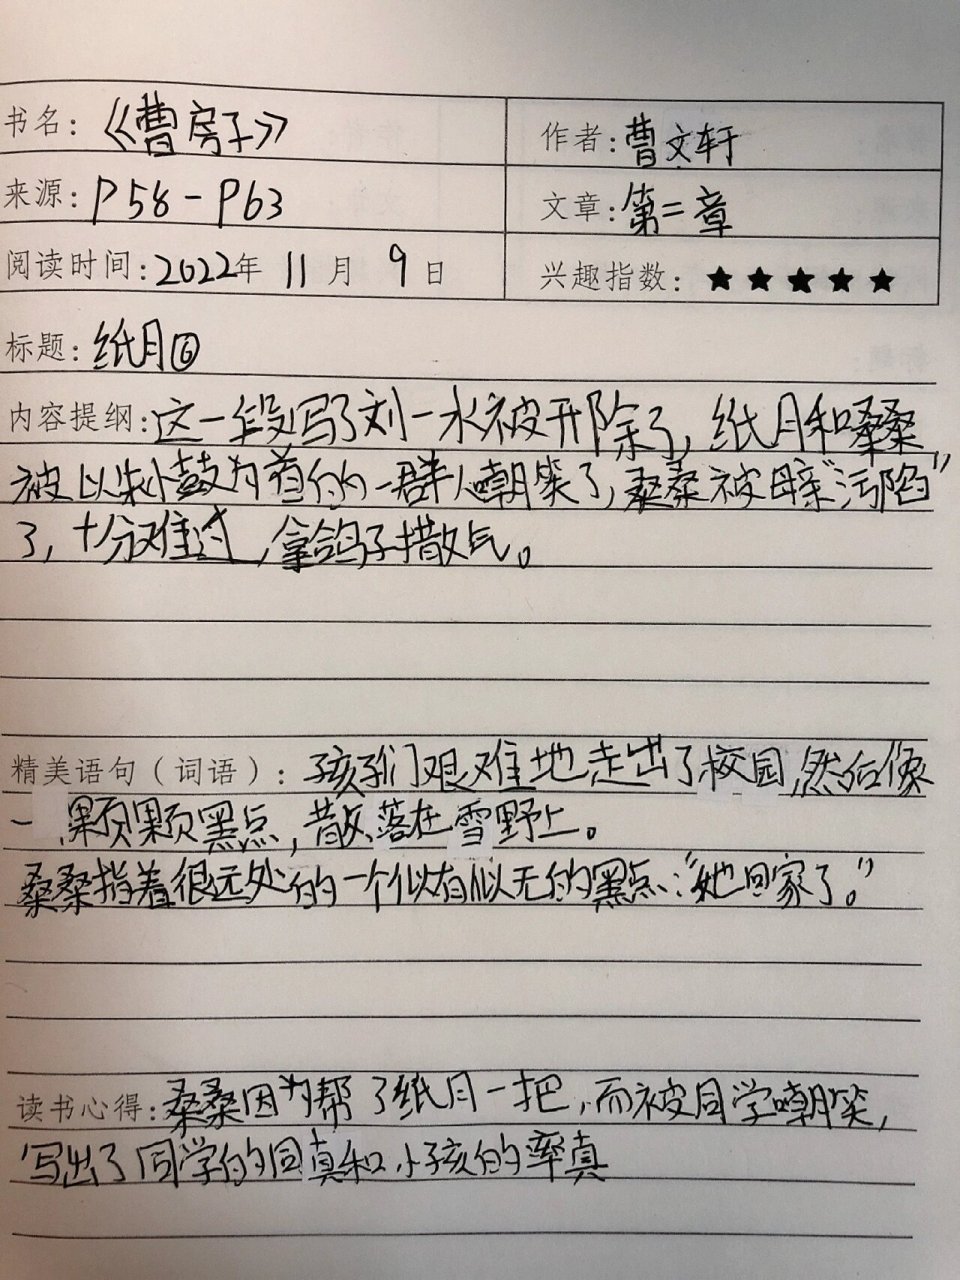 书名：《曹房子》 作者：曹文轩
来源：P58-P63 文章：第二章
阅读时间：2022年 11月 9日 兴趣指数：★★★★★
标题：纸月⑥
内容提纲：这一段写了刘一水被开除了，纸月和桑桑
被以朱小鼓为首的一群人嘲笑了，桑桑被母亲“污陷”
了，十分难过，拿鸽子撒气。
精美语句（词语）：孩子们艰难地走出了校园，然后像
一颗颗黑点，散落在雪野上。
桑桑指着很远处的一个似有似无的黑点：“她回家了。”
读书心得：桑桑因为帮了纸月一把，而被同学嘲笑，
写出了同学的同真和小孩的率真